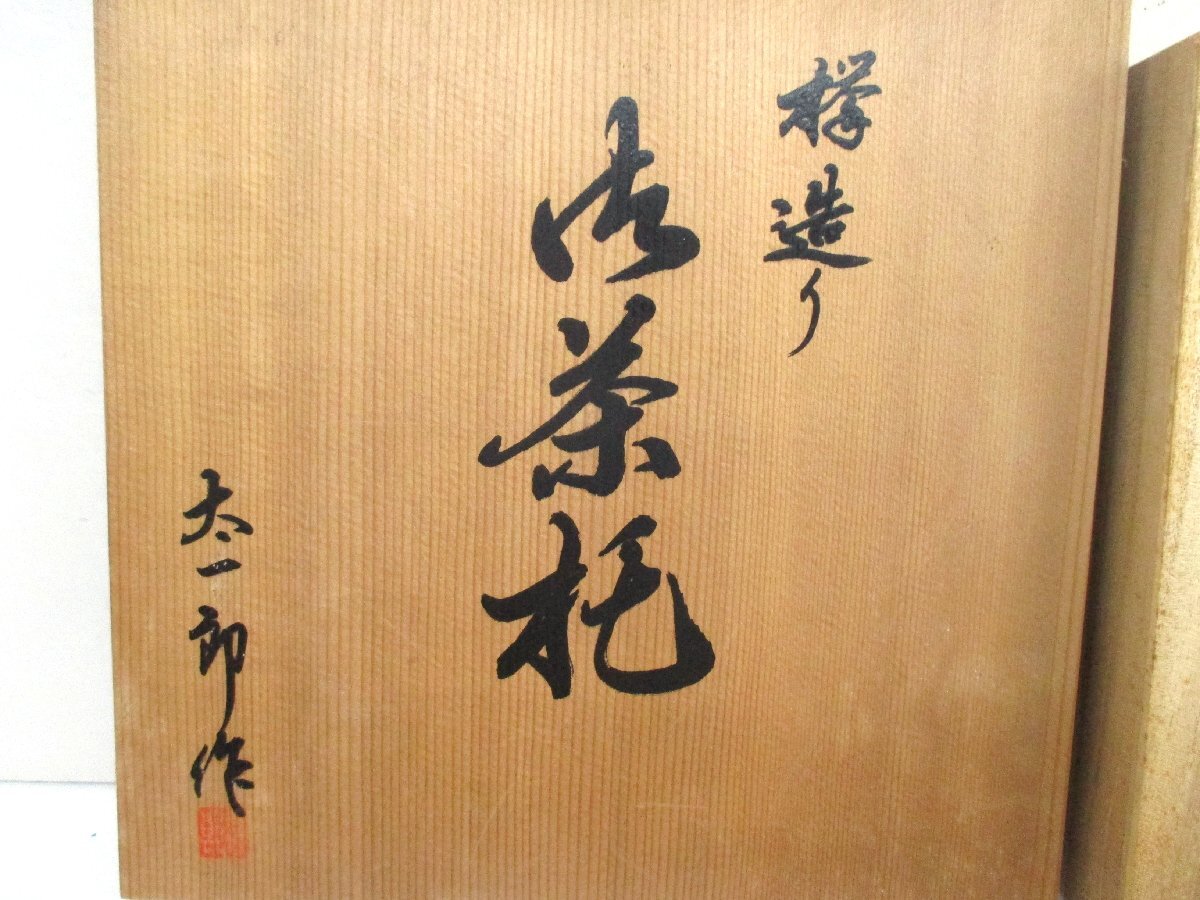 欅造り
御茶托
太一郎作